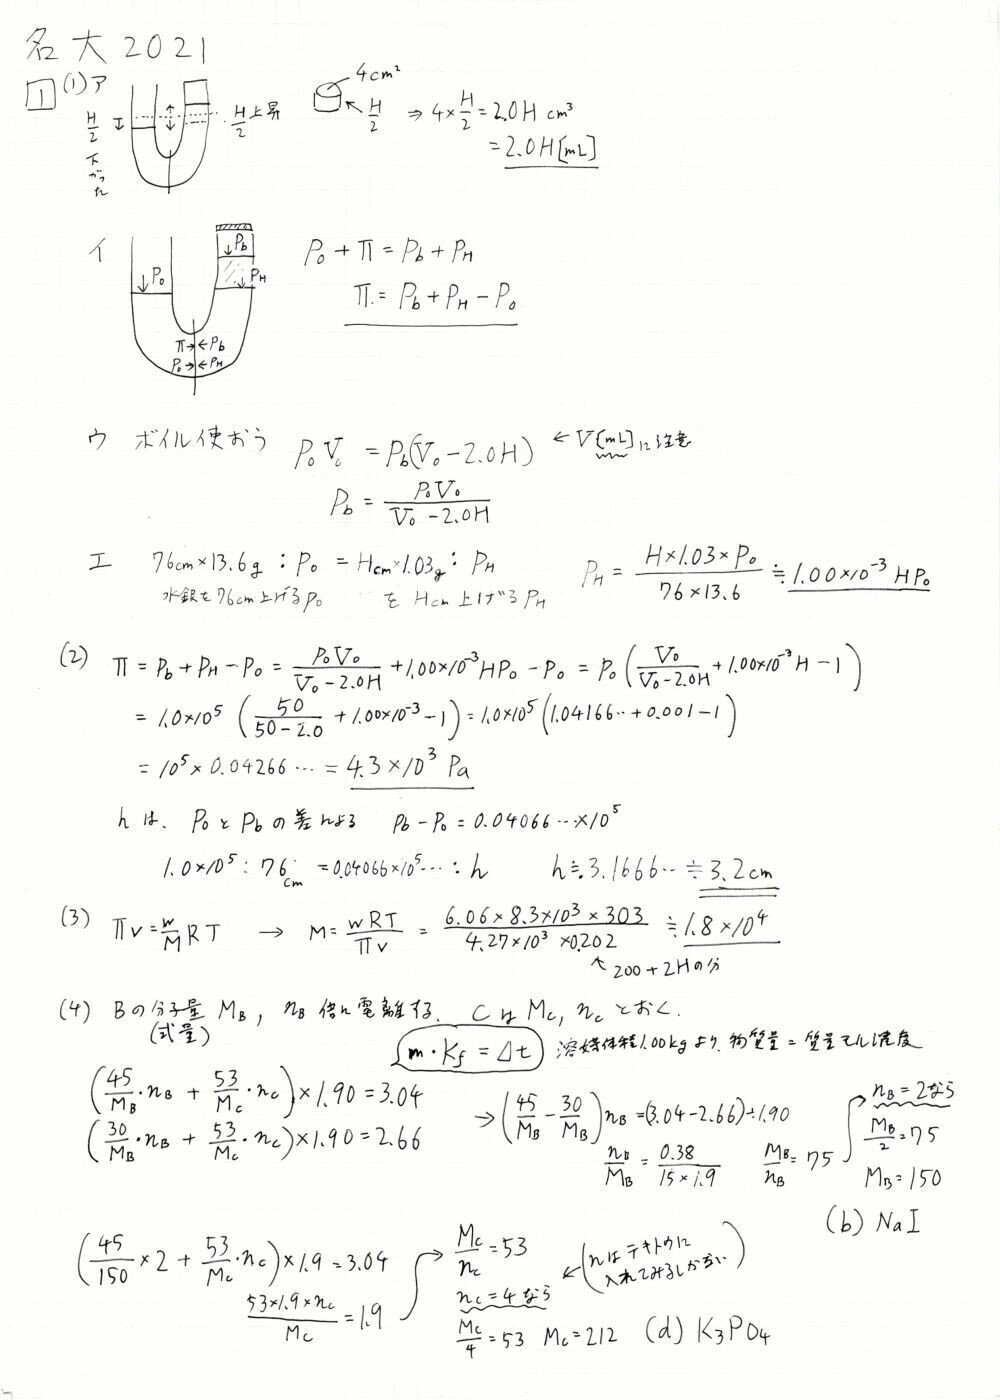 名大2021
1 (1)ア
H/2 下がった
H/2上昇
4cm²
H/2 ⇒ 4×H/2=2.0H cm³
=2.0H[mL]
イ
P₀
Pb
PH
π→←Pb
P₀→←PH
P₀+π=Pb+PH
π=Pb+PH−P₀
ウ ボイル使おう P₀V₀=Pb(V₀−2.0H) ←V[mL]に注意
Pb=P₀V₀/(V₀−2.0H)
エ 76cm×13.6g:P₀=Hcm×1.03g:PH
水銀を76cm上げるP₀ を Hcm上げるPH
PH=(H×1.03×P₀)/(76×13.6)≒1.00×10⁻³HP₀
(2) π=Pb+PH−P₀=P₀V₀/(V₀−2.0H)+1.00×10⁻³HP₀−P₀=P₀(V₀/(V₀−2.0H)+1.00×10⁻³H−1)
=1.0×10⁵(50/(50−2.0)+1.00×10⁻³−1)=1.0×10⁵(1.04166‥+0.001−1)
=10⁵×0.04266…=4.3×10³Pa
hは、P₀とPbの差による Pb−P₀=0.04066…×10⁵
1.0×10⁵:76cm=0.04066×10⁵…:h h≒3.1666‥≒3.2cm
(3) πv=w/M RT → M=wRT/πv=(6.06×8.3×10³×303)/(4.27×10³×0.202)≒1.8×10⁴
↖200+2Hの分
(4) Bの分子量MB, nB倍に電離する. CはMc, ncとおく.
(式量)
m・Kf=Δt 溶媒体積1.00kgより、物質量=質量モル濃度
(45/MB・nB+53/Mc・nc)×1.90=3.04
(30/MB・nB+53/Mc・nc)×1.90=2.66
→(45/MB−30/MB)nB=(3.04−2.66)÷1.90
nB/MB=0.38/(15×1.9) MB/nB=75
nB=2なら
MB/2=75
MB=150
(b) NaI
(45/150×2+53/Mc・nc)×1.9=3.04
(53×1.9×nc)/Mc=1.9
Mc/nc=53
nc=4なら ←(nはテキトウに入れてみるしかない)
Mc/4=53 Mc=212 (d) K₃PO₄